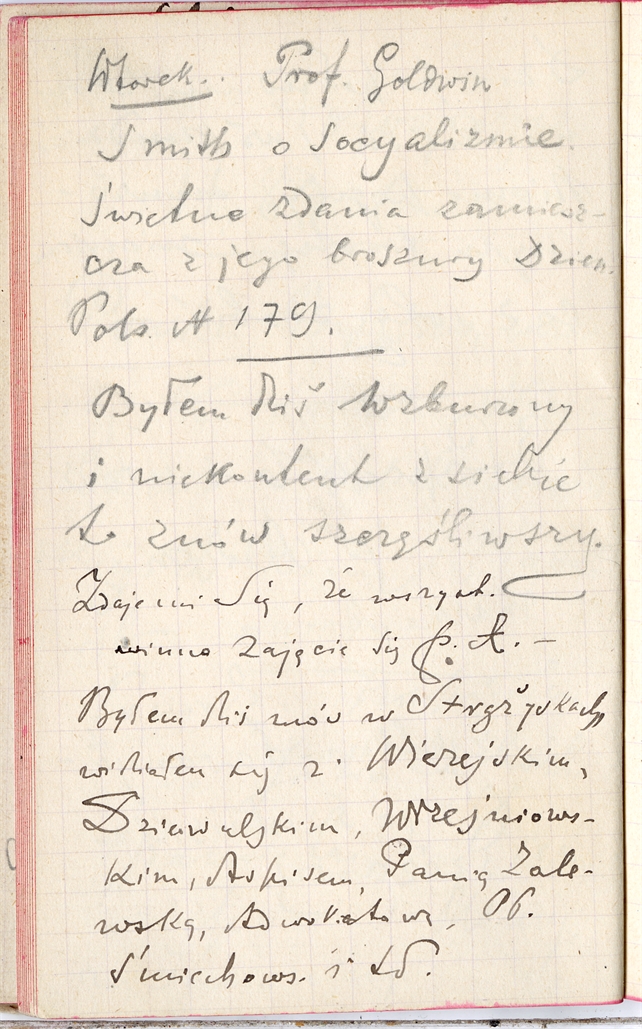 Wtorek. Prof. Goldwin
Smith o Socyalizmie.
Świetne zdania zamiesz-
cza z jego broszury Dzien.
Pols. N 179.
Byłem dziś wzburzony
i niekontent z siebie
to znów szczęśliwszy.
Zdaje mi Się, że wszyst.
winno zajęcie się p. A. –
Byłem dziś znów w
widziałem się z Wierzejskim,
Dziewulskim, Wrześniows-
kim, Panią Zale-
wską, Adwokatową, Pp.
Śmiechows. i td.